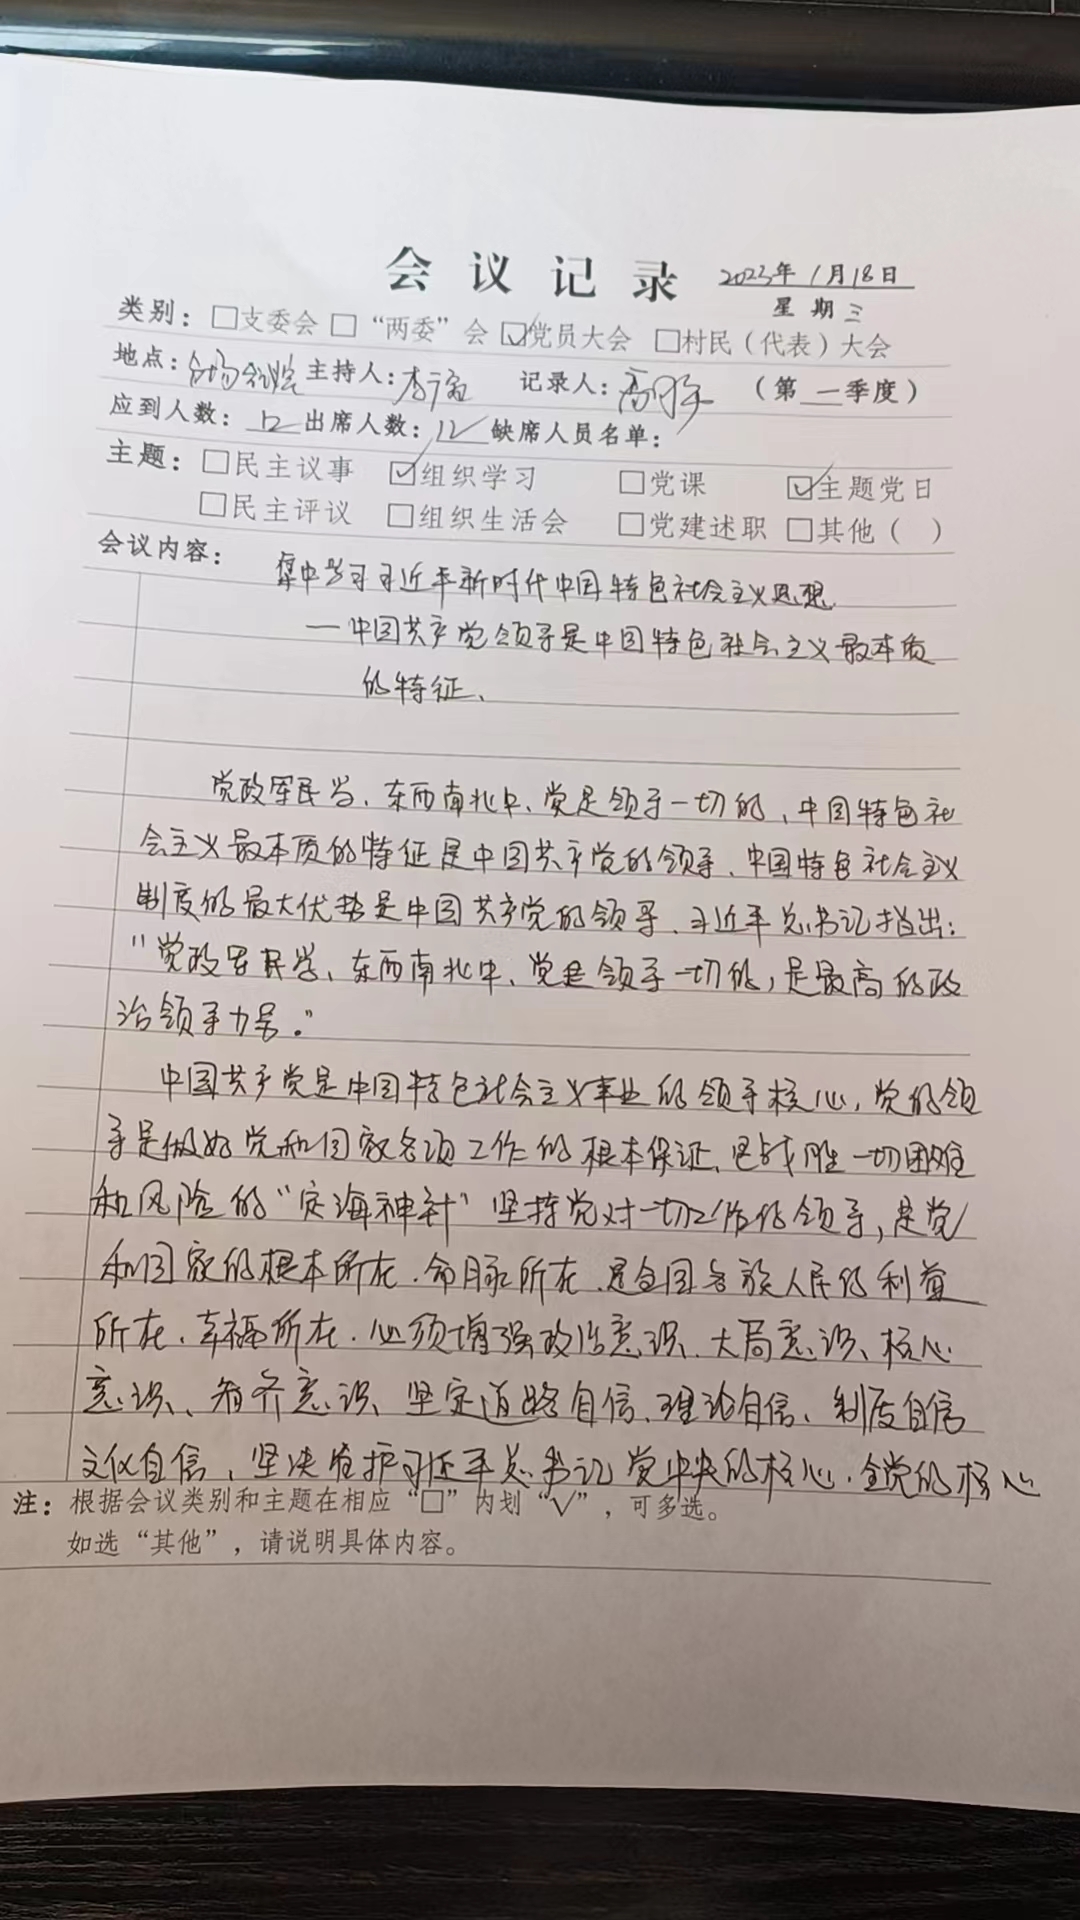 会议记录 2023年1月18日
星期三
类别：□支委会 □“两委”会 ☑党员大会 □村民（代表）大会
地点： 主持人： 记录人： （第一季度）
应到人数：12 出席人数：12 缺席人员名单：
主题：□民主议事 ☑组织学习 □党课 ☑主题党日
□民主评议 □组织生活会 □党建述职 □其他（ ）
会议内容：
集中学习习近平新时代中国特色社会主义思想
—中国共产党领导是中国特色社会主义最本质
的特征、
党政军民学、东西南北中、党是领导一切的、中国特色社
会主义最本质的特征是中国共产党的领导、中国特色社会主义
制度的最大优势是中国共产党的领导、习近平总书记指出：
“党政军民学、东西南北中、党是领导一切的，是最高的政
治领导力量。”
中国共产党是中国特色社会主义事业的领导核心，党的领
导是做好党和国家各项工作的根本保证、是战胜一切困难
和风险的“定海神针”坚持党对一切工作的领导，是党
和国家的根本所在、命脉所在、是全国各族人民的利益
所在、幸福所在、必须增强政治意识、大局意识、核心
意识、看齐意识、坚定道路自信、理论自信、制度自信
文化自信、坚决维护习近平总书记党中央的核心、全党的核心
注：根据会议类别和主题在相应“□”内划“√”，可多选。
如选“其他”，请说明具体内容。